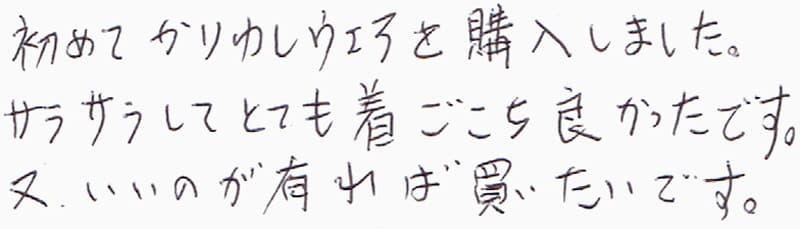 初めてかりゆしウエアを購入しました。
サラサラしてとても着ごこち良かったです。
又、いいのが有れば買いたいです。